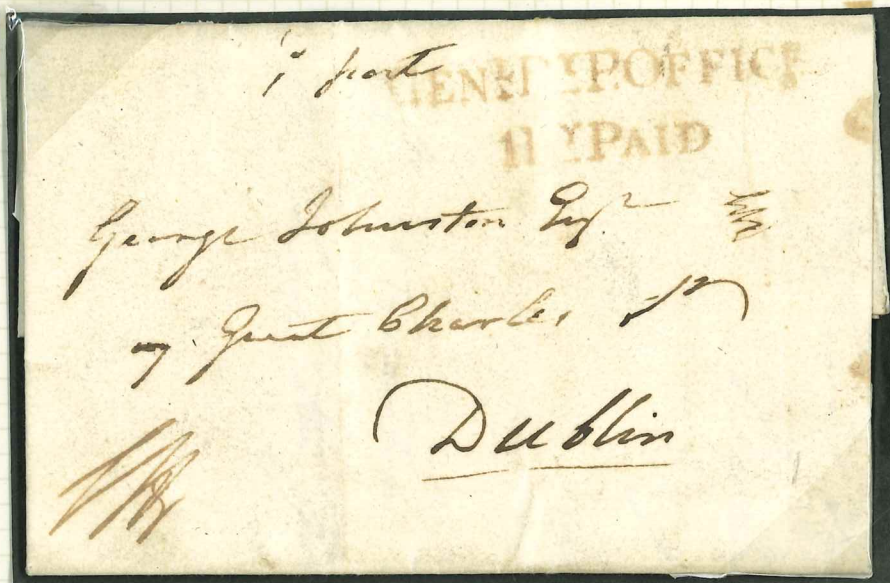 post
P.OFFICE
PAID
George Johnston Esqr
Great Charles St
Dublin